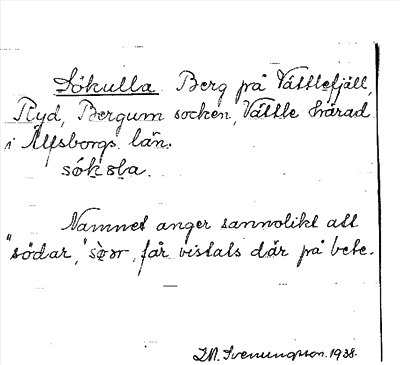 Sökulla Berg på Vättlefjäll,
Ryd, Bergum socken, Vättle härad
i Älfsborgs län.
Namnet anger sannolikt att
"södar," får vistats där på bete.
Svenungsson. 1938.